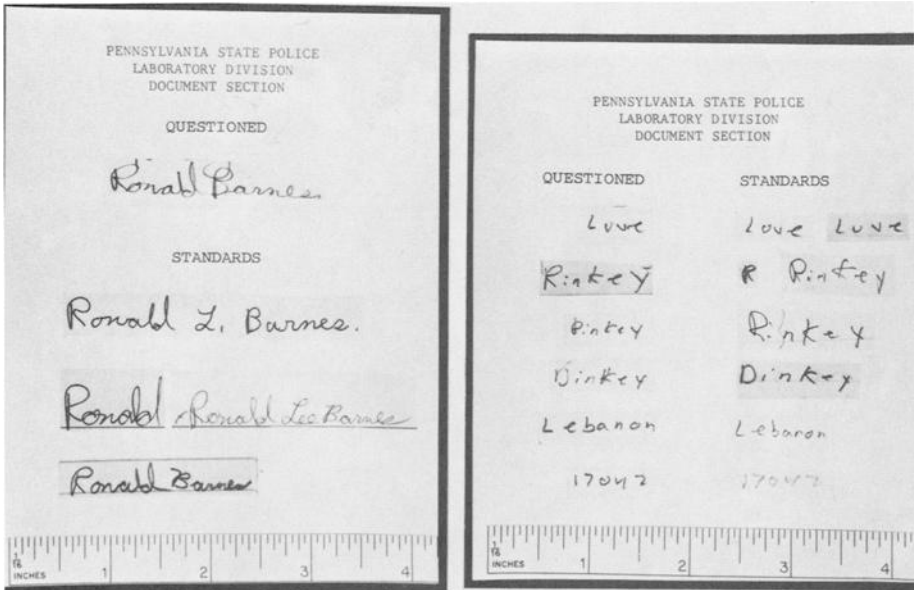 PENNSYLVANIA STATE POLICE
LABORATORY DIVISION
DOCUMENT SECTION
QUESTIONED
Ronald Barnes
STANDARDS
Ronald L. Barnes.
Ronald Ronald Lee Barnes
Ronald Barnes
1/16 INCHES 1 2 3 4
PENNSYLVANIA STATE POLICE
LABORATORY DIVISION
DOCUMENT SECTION
QUESTIONED STANDARDS
Love Love Love
Rinkey R Rinkey
Rinkey Rinkey
Dinkey Dinkey
Lebanon Lebanon
17042 17042
1/16 INCHES 1 2 3 4